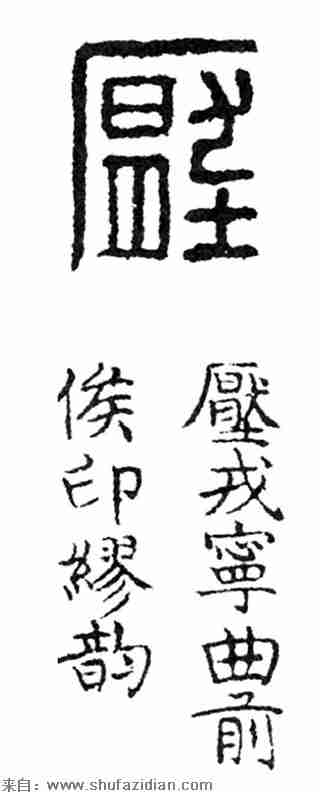 壓
壓戎寧曲前
侯印繆韵
来自: www.shufazidian.com